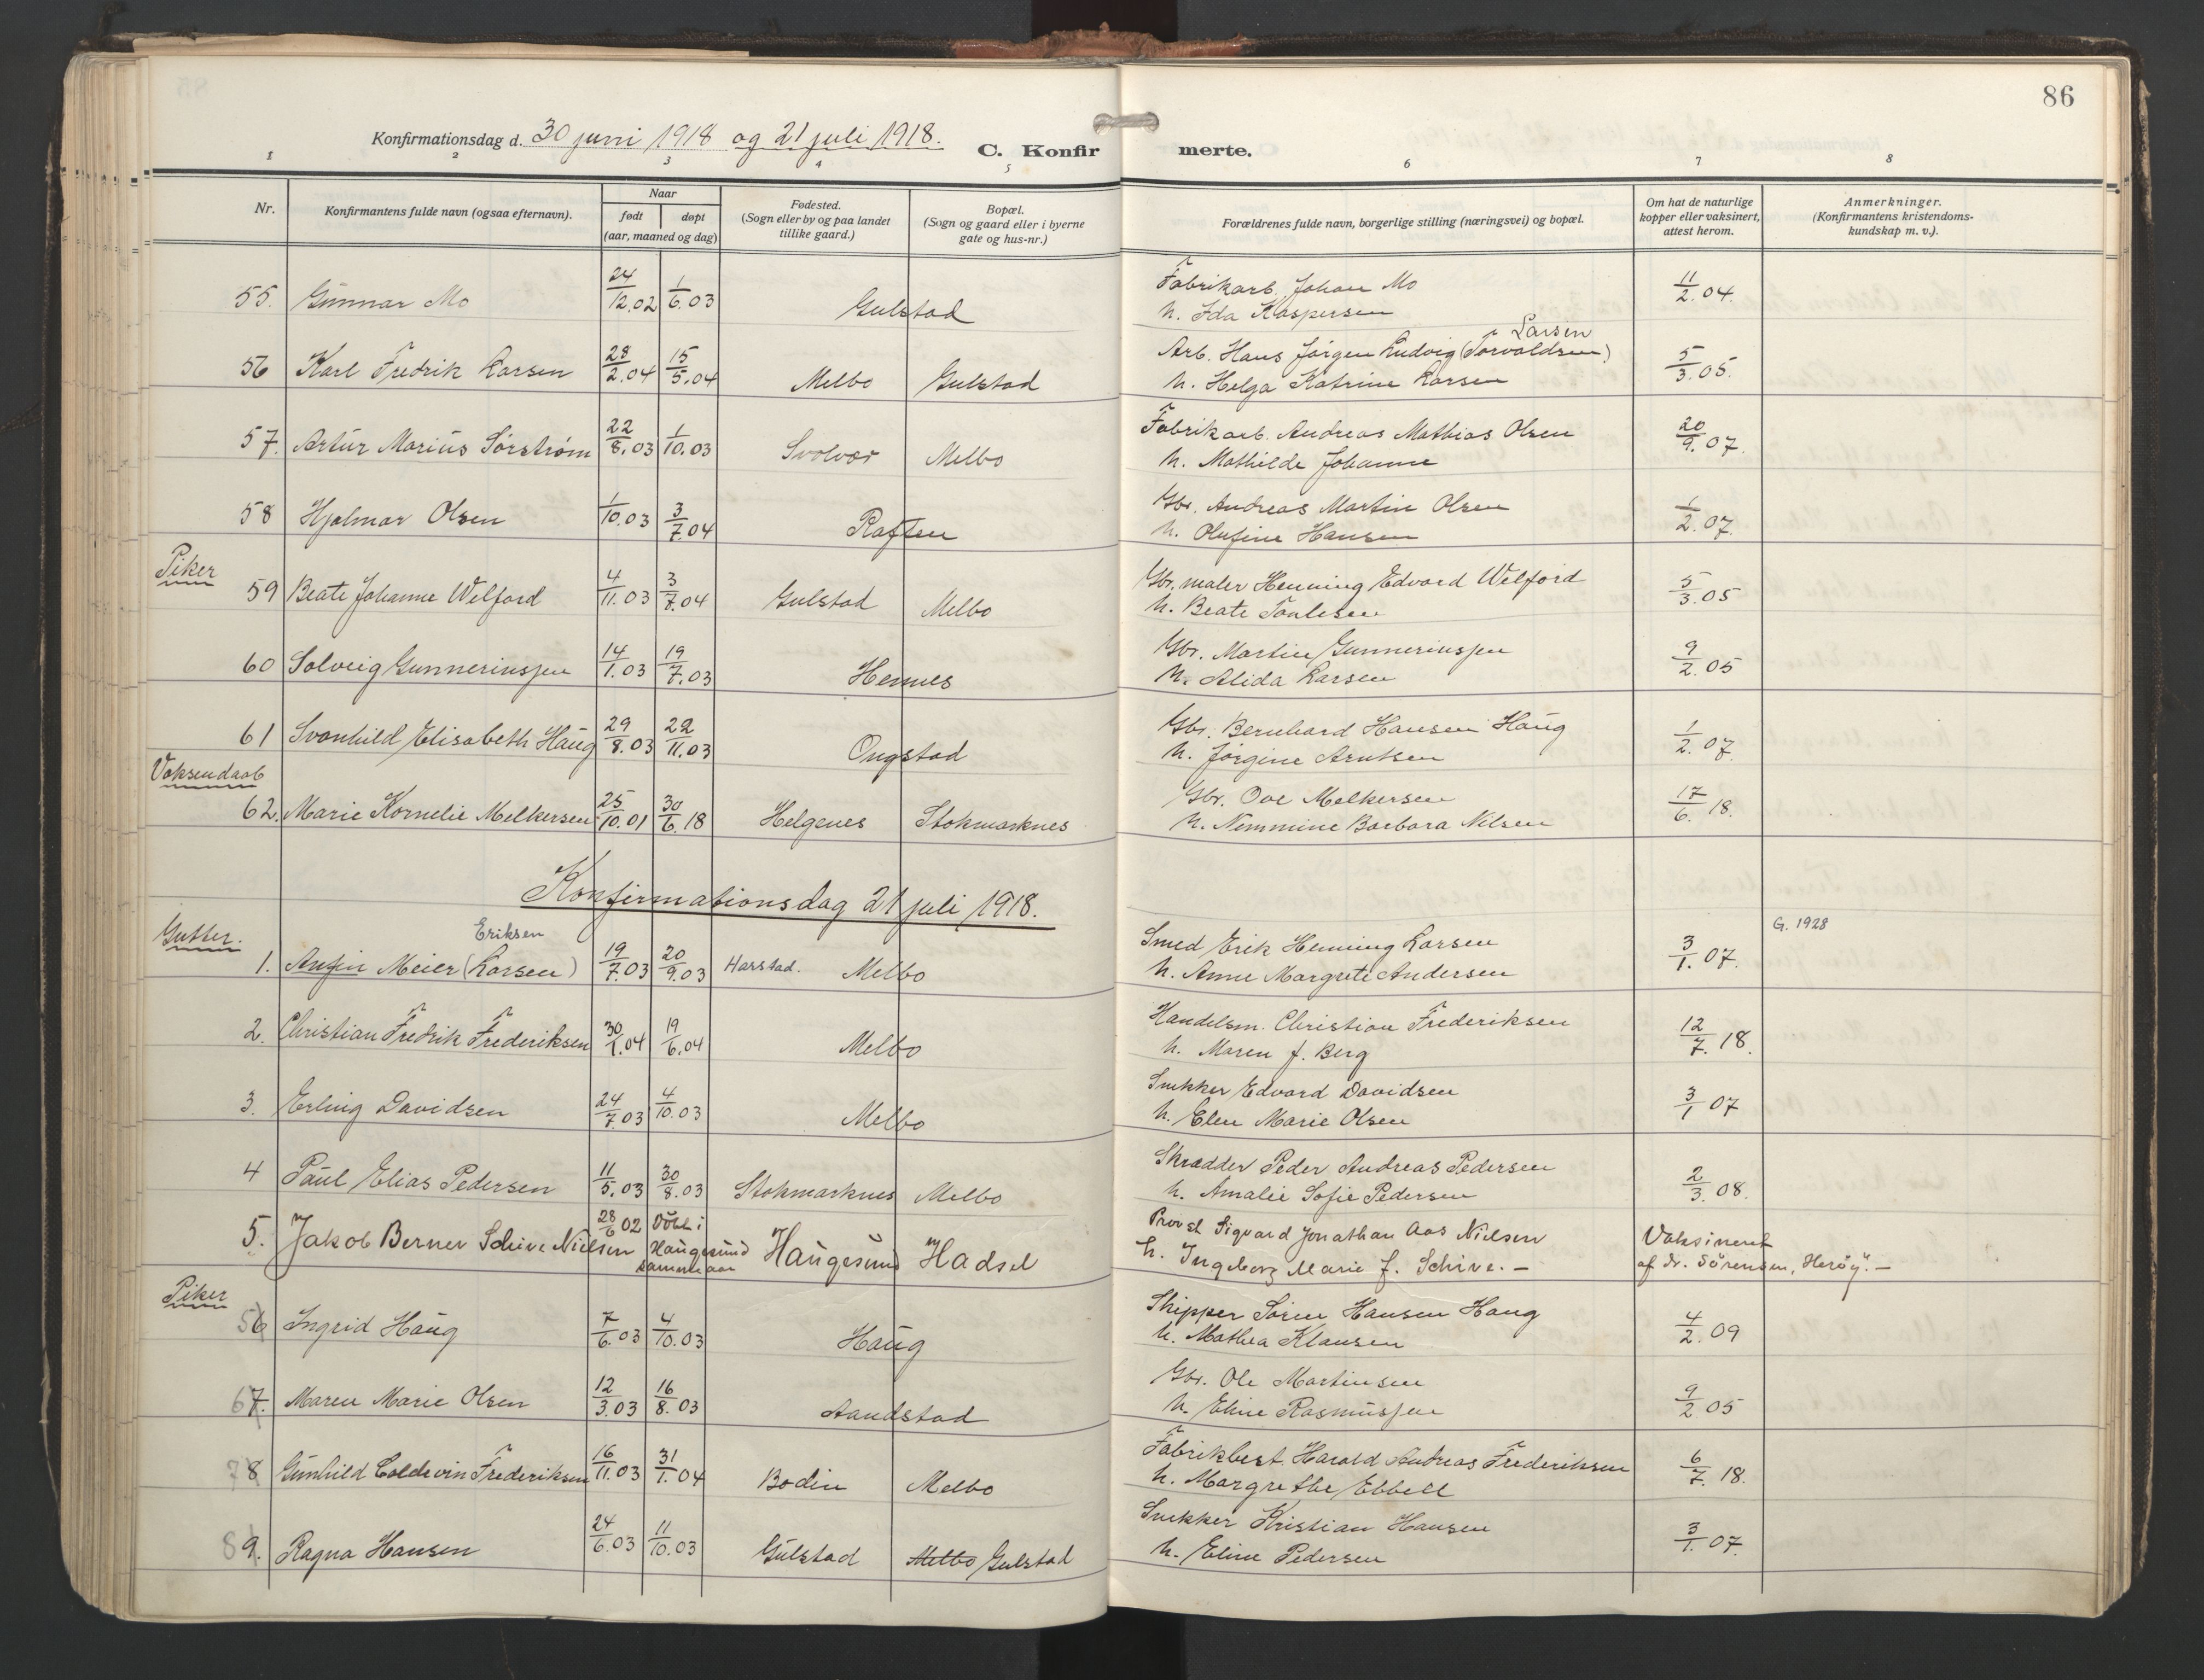 86
Konfirmationsdag d. 30 juni 1918 og 21 juli 1918.
C. Konfirmerte.
1 2 3 4 5 6 7 8
Nr.
Konfirmantens fulde navn (ogsaa efternavn).
Naar
født døpt
(aar, maaned og dag)
Fødested.
(Sogn eller by og paa landet
tillike gaard.)
Bopæl.
(Sogn og gaard eller i byerne
gate og hus-nr.)
Forældrenes fulde navn, borgerlige stilling (næringsvei) og bopæl.
Om hat de naturlige
kopper eller vaksinert,
attest herom.
Anmerkninger.
(Konfirmantens kristendoms-
kundskap m. v.).
55. Gunnar Mo 24/12.02 1/6.03 Gulstad Fabrikarb. Johan Mo 11/2.04.
h. Ida Kaspersen
Larsen
56 Karl Fredrik Larsen 28/2.04 15/5.04 Melbo Gulstad Arb. Hans Jørgen Ludvig (Torvaldsen) 5/3.05.
h. Helga Katrine Larsen
57. Artur Marius Sørstrøm 22/8.03 1/10.03 Svolvær Melbo Fabrikarb. Andreas Mathias Olsen 20/9.07.
h. Mathilde Johanne
58 Hjalmar Olsen 1/10.03 3/7.04 Raften Gbr. Andreas Martin Olsen 1/2.07.
h. Olufine Hansen
Piker
59 Beate Johanne Welford 4/11.03 3/7.04 Gulstad Melbo Gbr. maler Henning Edvard Welford 5/3.05
h. Beate
60 Solveig Gunneriussen 14/1.03 19/7.03 Hennes Gbr. Martin Gunneriussen 9/2.05
h. Alida Larsen
61 Svanhild Elisabeth Haug 29/8.03 22/11.03 Ongstad Gbr. Bernhard Hansen Haug 1/2.07.
h. Jørgine Arntsen
Voksendaab
62. Marie Kornelie Melkersen 25/10.01 30/6.18 Helgenes Stokmarknes Gbr. Ove Melkersen 17/6.18.
h. Nemmine Barbara Nilsen
Konfirmationsdag 21 juli 1918.
Gutter.
Eriksen G. 1928
1. Anfin Meier (Larsen) 19/7.03 20/9.03 Harstad. Melbo Smed Erik Henning Larsen 3/1.07.
h. Anne Margrete Andersen
2. Christian Fredrik Frederiksen 30/1.04 19/6.04 Melbo Handelsm. Christian Frederiksen 12/7.18.
h. Maren f. Berg
3. Erling Davidsen 24/7.03 4/10.03 Melbo Snekker Edvard Davidsen 3/1 07
h. Elen Marie Olsen
4 Paul Elias Pedersen 11/5.03 30/8.03 Stokmarknes Melbo Skrædder Peder Andreas Pedersen 2/3.08.
h. Amalie Sofie Pedersen
5. Jakob Berner Schive Nielsen 28/6 02 Döbt i Haugesund samme aar Haugesund Hadsel Provst Sigvard Jonathan Aas Nielsen Vaksineret
h. Ingeborg Marie f. Schive. – af Dr. Sörensen, Heröy. –
Piker
56 Ingrid Haug 7/6.03 4/10.03 Haug Skipper Søren Hansen Haug 4/2.09
h. Mathea Klausen
67. Maren Marie Olsen 12/3.03 16/8.03 Aandstad Gbr. Ole Martinsen 9/2 05
h. Eline Rasmussen
78 Gunhild Coldevin Frederiksen 16/11.03 31/1.04 Bodin Melbo Fabrikbest. Harald Andreas Frederiksen 6/7.18.
h. Margrethe Ebbell
89. Ragna Hansen 24/6.03 11/10.03 Gulstad Melbo Gulstad Snekker Kristian Hansen 3/1.07.
h. Eline Pedersen